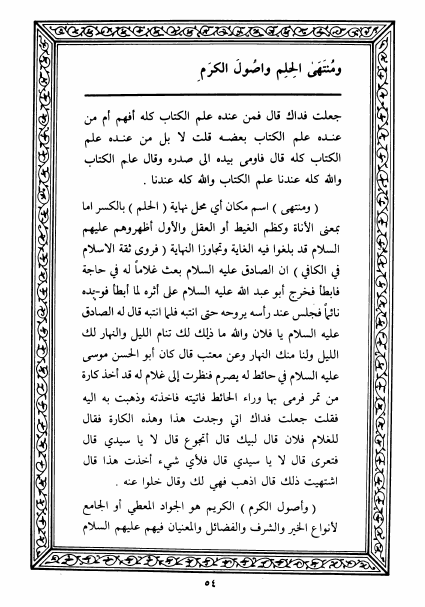 ومُنتَهىٰ الحِلِم واصُولَ الكرَمِ
جعلت فداك قال فمن عنده علم الكتاب كله أفهم أم من
عنده علم الكتاب بعضه قلت لا بل من عنده علم
الكتاب كله قال فاومى بيده الى صدره وقال علم الكتاب
والله كله عندنا علم الكتاب والله كله عندنا .
( ومنتهى ) اسم مكان أي محل نهاية ( الحلم ) بالكسر اما
بمعنى الأناة وكظم الغيظ أو العقل والأول أظهروهم عليهم
السلام قد بلغوا فيه الغاية وتجاوزا النهاية ( فروى ثقة الاسلام
في الكافي ) ان الصادق عليه السلام بعث غلاماً له في حاجة
فابطأ فخرج أبو عبد الله عليه السلام على أثره لما أبطأ فوجده
نائماً فجلس عند رأسه يروحه حتى انتبه فلما انتبه قال له الصادق
عليه السلام يا فلان والله ما ذلك لك تنام الليل والنهار لك
الليل ولنا منك النهار وعن معتب قال كان أبو الحسن موسى
عليه السلام في حائط له يصرم فنظرت إلى غلام له قد أخذ كارة
من تمر فرمى بها وراء الحائط فاتيته فاخذته وذهبت به اليه
فقلت جعلت فداك اني وجدت هذا وهذه الكارة فقال
للغلام فلان قال لبيك قال أتجوع قال لا يا سيدي قال
فتعرى قال لا يا سيدي قال فلأي شيء أخذت هذا قال
اشتهيت ذلك قال اذهب فهي لك وقال خلوا عنه .
( وأصول الكرم ) الكريم هو الجواد المعطي أو الجامع
لأنواع الخير والشرف والفضائل والمعنيان فيهم عليهم السلام
٥٤